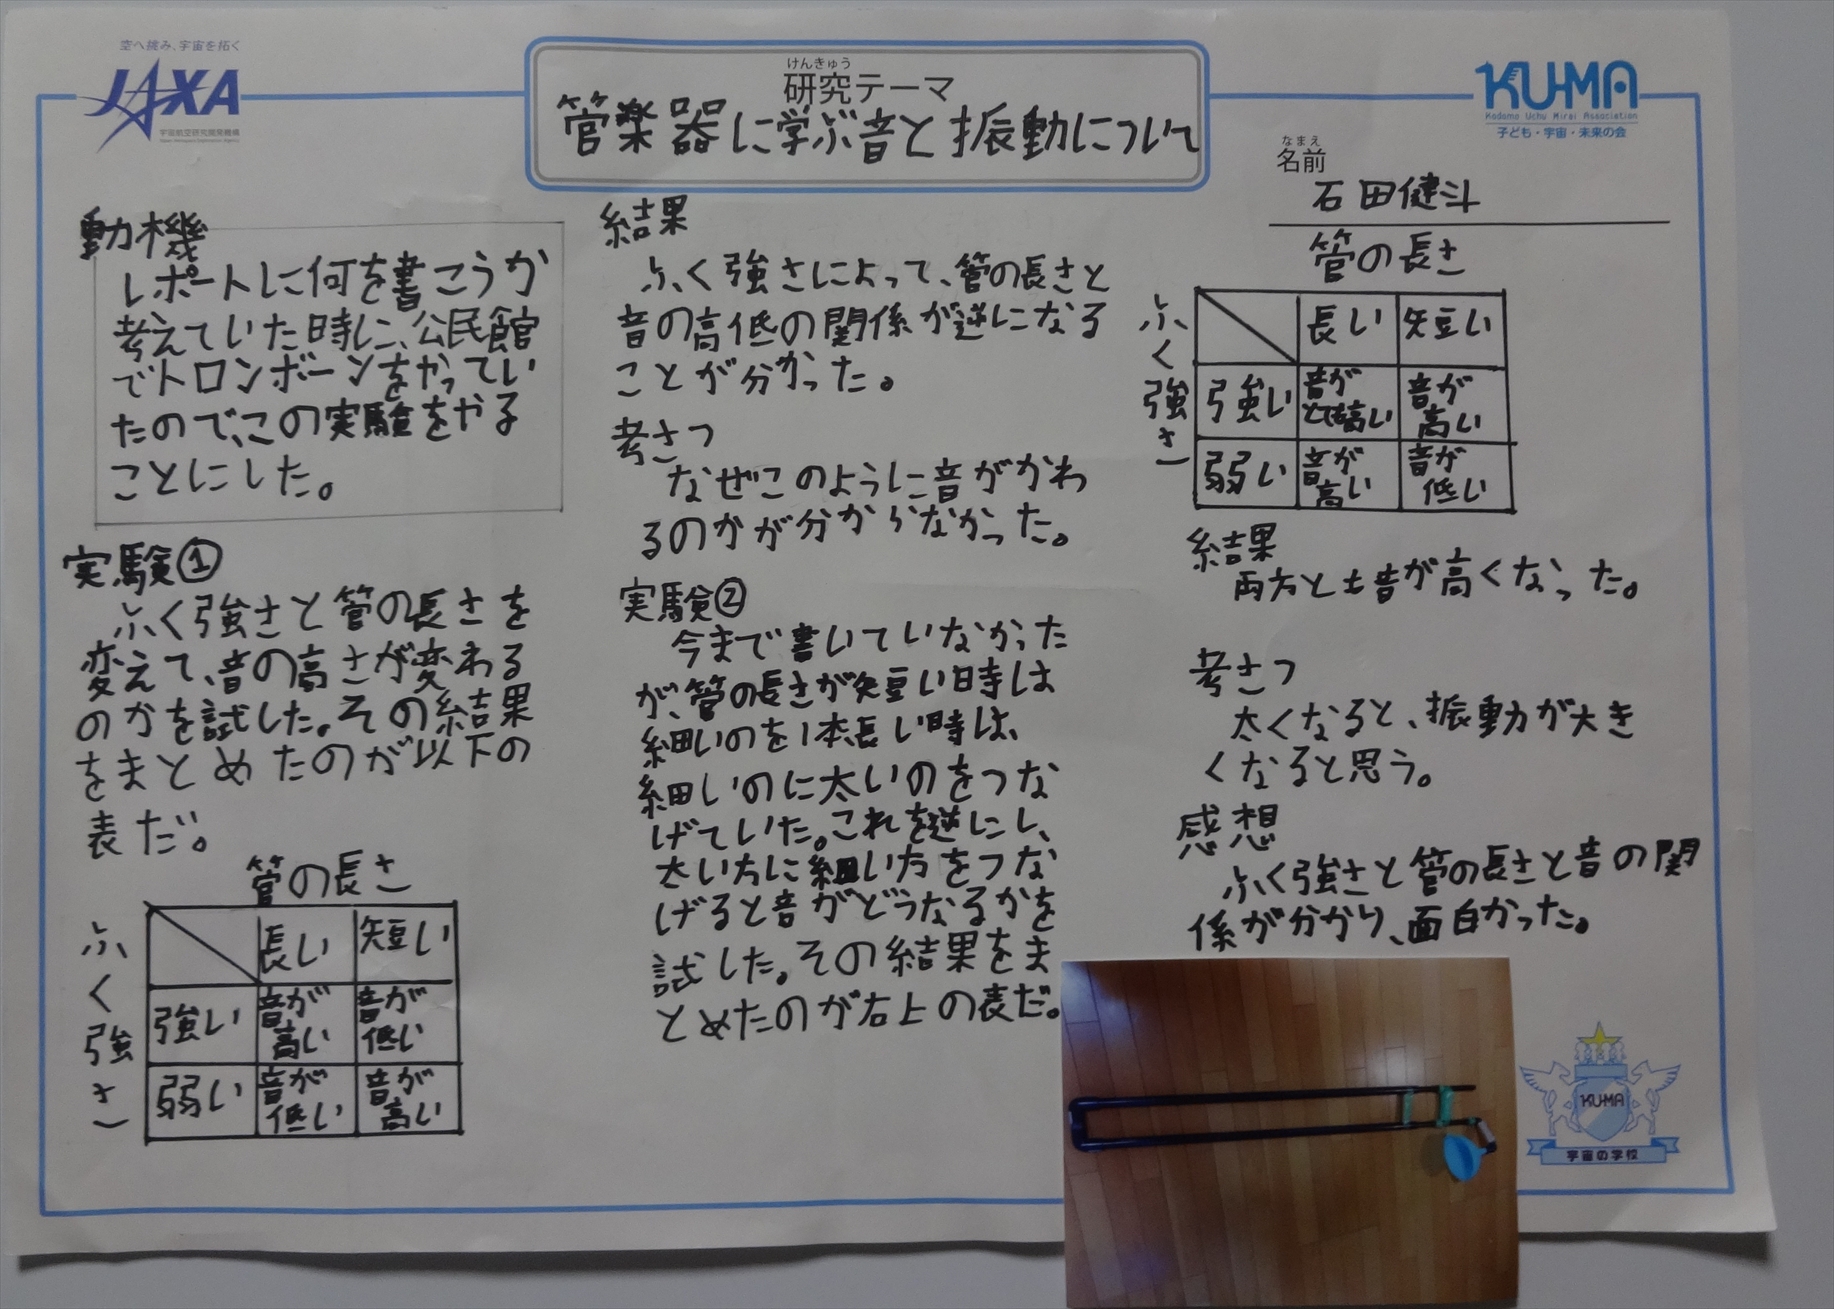 空へ挑み、宇宙を拓く
JAXA
宇宙航空研究開発機構
Japan Aerospace Exploration Agency
けんきゅう
研究テーマ
管楽器に学ぶ音と振動について
KU-MA
Kodomo Uchu Mirai Association
子ども・宇宙・未来の会
なまえ
名前
石田健斗
動機
レポートに何を書こうか
考えていた時に、公民館
でトロンボーンをやってい
たので、この実験をやる
ことにした。
実験①
ふく強さと管の長さを
変えて、音の高さが変わる
のかを試した。その結果
をまとめたのが以下の
表だ。
管の長さ
ふく強さ
長い 短い
強い 音が高い 音が低い
弱い 音が低い 音が高い
結果
ふく強さによって、管の長さと
音の高低の関係が逆になる
ことが分かった。
考さつ
なぜこのように音がかわ
るのかが分からなかった。
実験②
今まで書いていなかった
が、管の長さが短い時は
細いのを1本長い時は、
細いのに太いのをつな
げていた。これを逆にし、
太い方に細い方をつな
げると音がどうなるかを
試した。その結果をま
とめたのが右上の表だ。
管の長さ
ふく強さ
長い 短い
強い 音がとても高い 音が高い
弱い 音が高い 音が低い
結果
両方とも音が高くなった。
考さつ
太くなると、振動が大き
くなると思う。
感想
ふく強さと管の長さと音の関
係が分かり、面白かった。
KU-MA
宇宙の学校